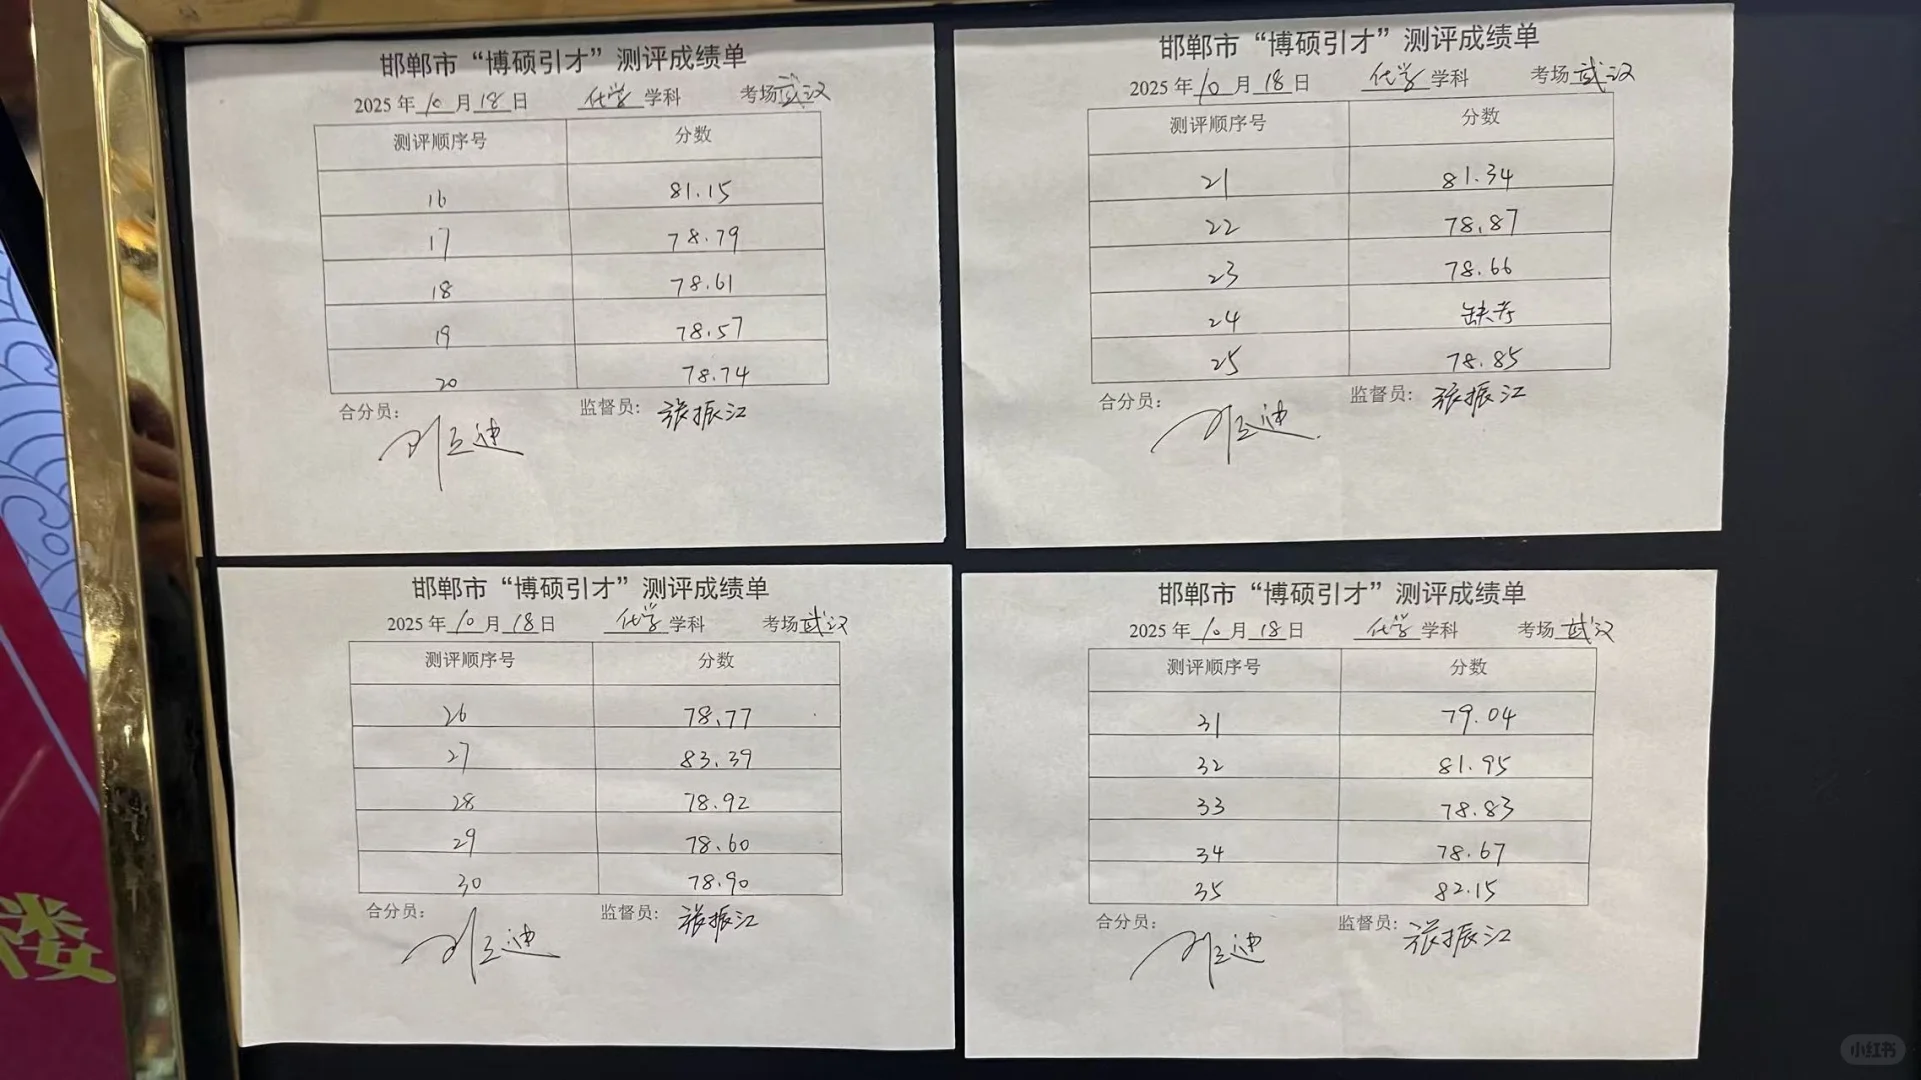 邯郸市“博硕引才”测评成绩单
2025年10月18日 化学学科 考场武汉
测评顺序号 分数
16 81.15
17 78.79
18 78.61
19 78.57
20 78.74
合分员： 监督员：张振江
邯郸市“博硕引才”测评成绩单
2025年10月18日 化学学科 考场武汉
测评顺序号 分数
21 81.34
22 78.87
23 78.66
24 缺考
25 78.85
合分员： 监督员：张振江
邯郸市“博硕引才”测评成绩单
2025年10月18日 化学学科 考场武汉
测评顺序号 分数
26 78.77
27 83.39
28 78.92
29 78.60
30 78.90
合分员： 监督员：张振江
邯郸市“博硕引才”测评成绩单
2025年10月18日 化学学科 考场武汉
测评顺序号 分数
31 79.04
32 81.95
33 78.83
34 78.67
35 82.15
合分员： 监督员：张振江
楼
小红书